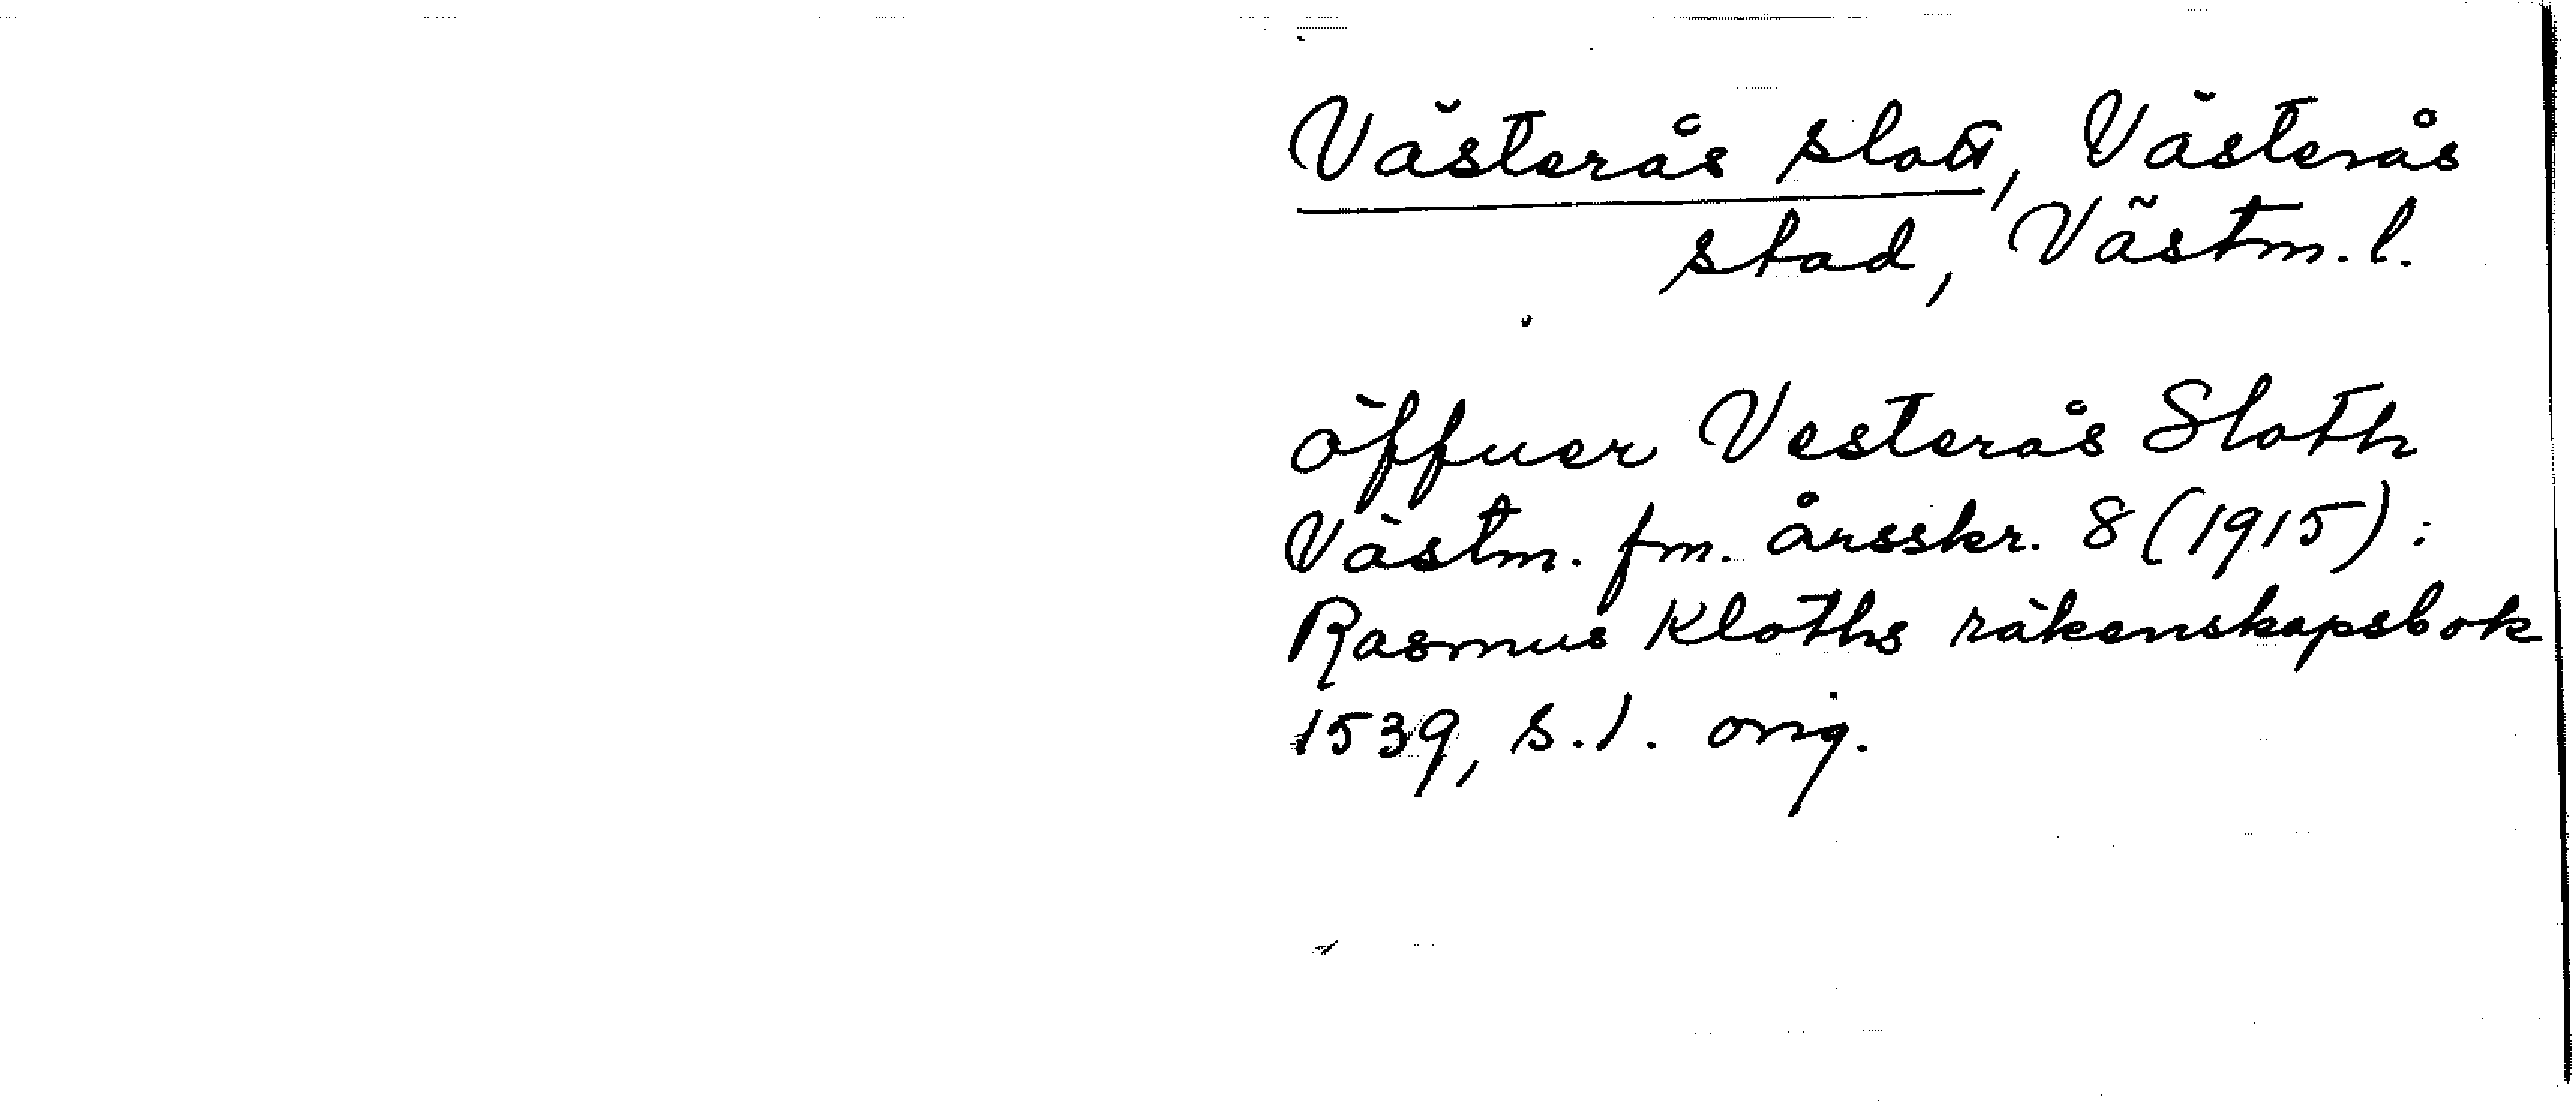 Västerås slott, Västerås
stad, Västm. l.
öffuer Vesterås Sloth
Västm. fm. årsskr. 8 (1915):
Rasmus Kloths räkenskapsbok
1539, s. 1. orig.